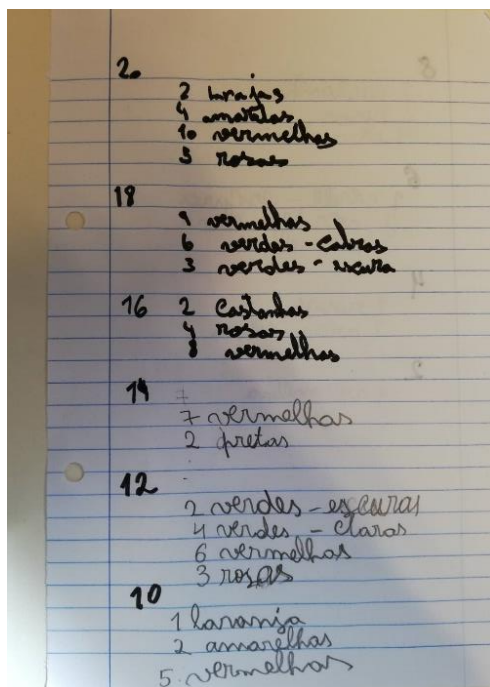 20
2 laranjas
4 amarelas
10 vermelhas
5 rosas
18
9 vermelhas
6 verdes - calras
3 verdes - escura
16 2 castanhas
4 rosas
8 vermelhas
14 7
7 vermelhas
2 pretas
12
2 verdes - escuras
4 verdes - claras
6 vermelhas
3 rosas
10
1 laranja
2 amarelhas
5. vermelhas